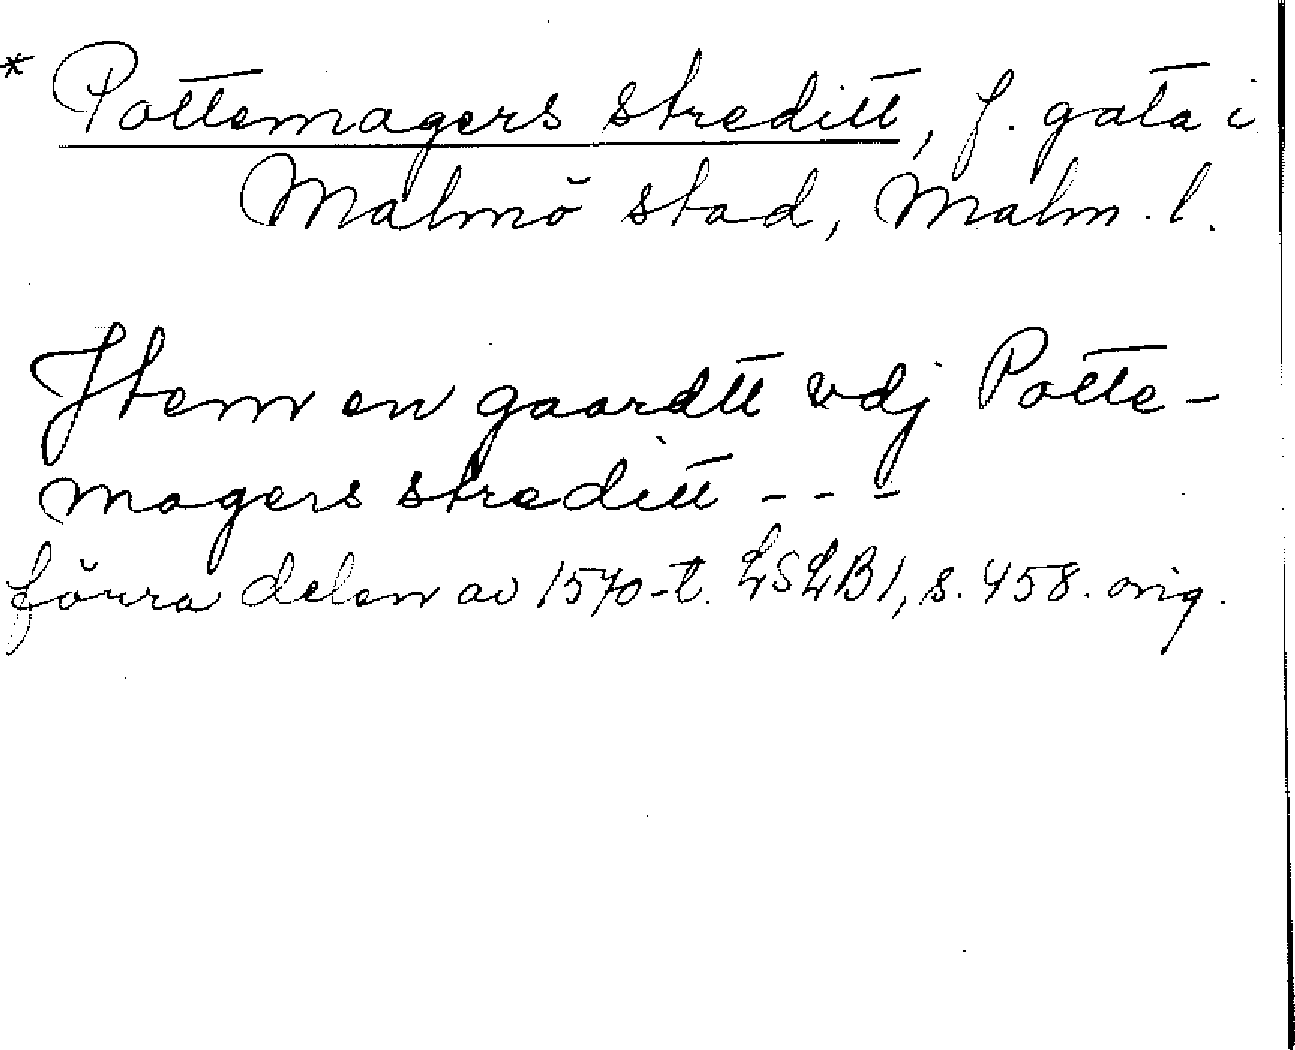 * Pottemagers streditt, f. gata i
Malmö stad, Malm. l.
Jtem en gaardtt vdj Potte-
magers streditt - - -
förra delen av 1570-t. LSLB1, s. 458. orig.